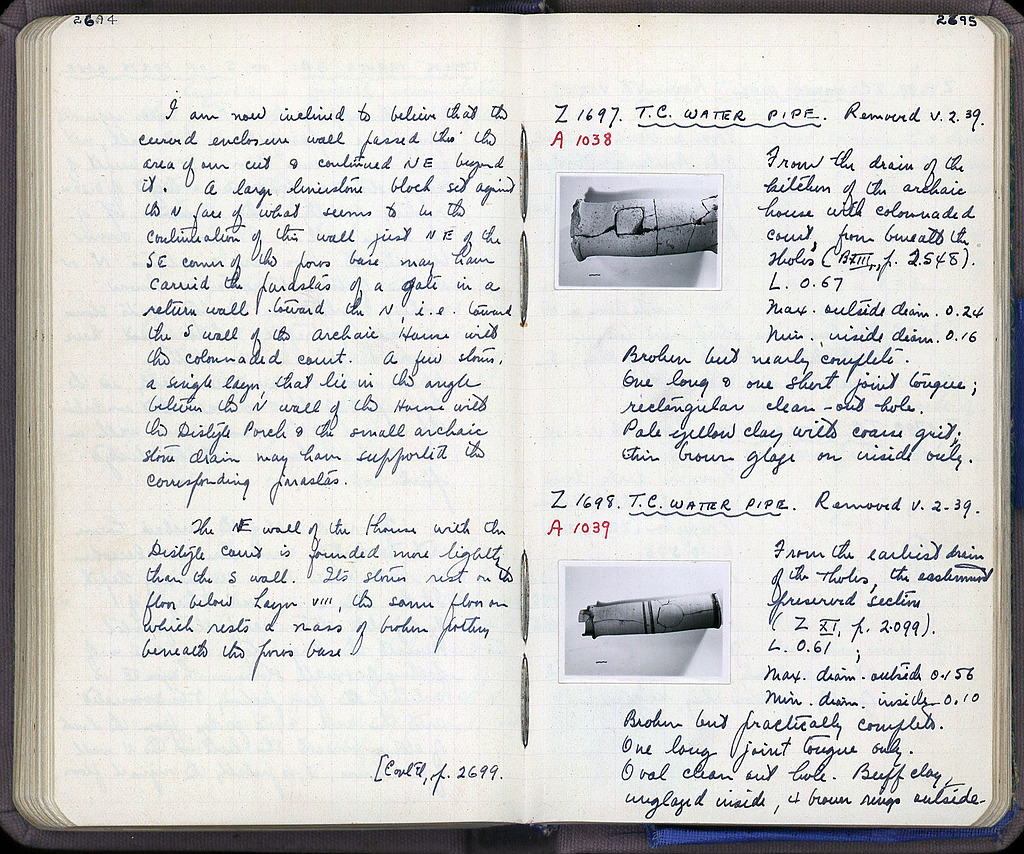 2694
I am now inclined to believe that the
curved enclosure wall passed thro' the
area of our cut & continued NE beyond
it. A large limestone block set against
the N face of what seems to be the
continuation of this wall just NE of the
SE corner of the poros base may have
carried the parastas of a gate in a
return wall toward the N, i.e. toward
the S wall of the archaic House with
the colonnaded court. A few stones,
a single layer, that lie in the angle
between the N wall of the House with
the Distyle Porch & the small archaic
stone drain may have supported the
corresponding parastas.
The NE wall of the House with the
Distyle Court is founded more lightly
than the S wall. Its stones rest on the
floor below Layer VIII, the same floor on
which rests a mass of broken pottery
beneath the poros base
[Cont'd, p. 2699.
2695
Z 1697. T.C. WATER PIPE. Removed V.2.39.
A 1038
From the drain of the
kitchen of the archaic
house with colonnaded
court, from beneath the
Tholos (p. 2548).
L. 0.67
Max. outside diam. 0.24
Min. inside diam. 0.16
Broken but nearly complete.
One long & one short joint tongue;
rectangular clean-out hole.
Pale yellow clay with coarse grit;
thin brown glaze on inside only.
Z 1698. T.C. WATER PIPE. Removed V.2-39.
A 1039
From the earliest drain
of the Tholos, the easternmost
preserved section
(Z XI, p. 2099).
L. 0.61 ;
Max. diam. outside 0.156
Min. diam. inside 0.10
Broken but practically complete.
One long joint tongue only.
Oval clean out hole. Buff clay,
unglazed inside, 4 brown rings outside-